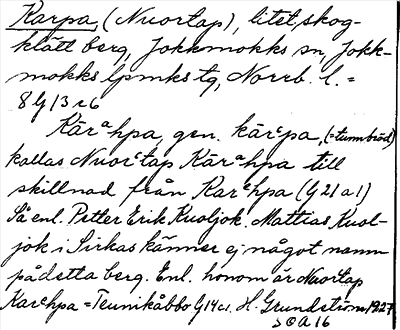 Karpa, (Nuortap), litet, skog-
klätt berg, Jokkmokks sn, Jokk-
mokks lpmks tg, Norrb. l. =
8 G 13 c 6
Kārᵃhpa, gen. kārᵉpa, (= tunnbröd)
kallas Nuorᵗtap Kārᵃhpa till
skillnad från Karᵉhpa (G 21 a 1)
Så enl. Petter Erik Kuoljok. Mattias Kuol-
jok i Sirkas känner ej något namn
på detta berg. Enl. honom är Nuortap
Karᵉhpa = Teunikåbbo G 14 c 1. H. Grundström 1927
SOA 16